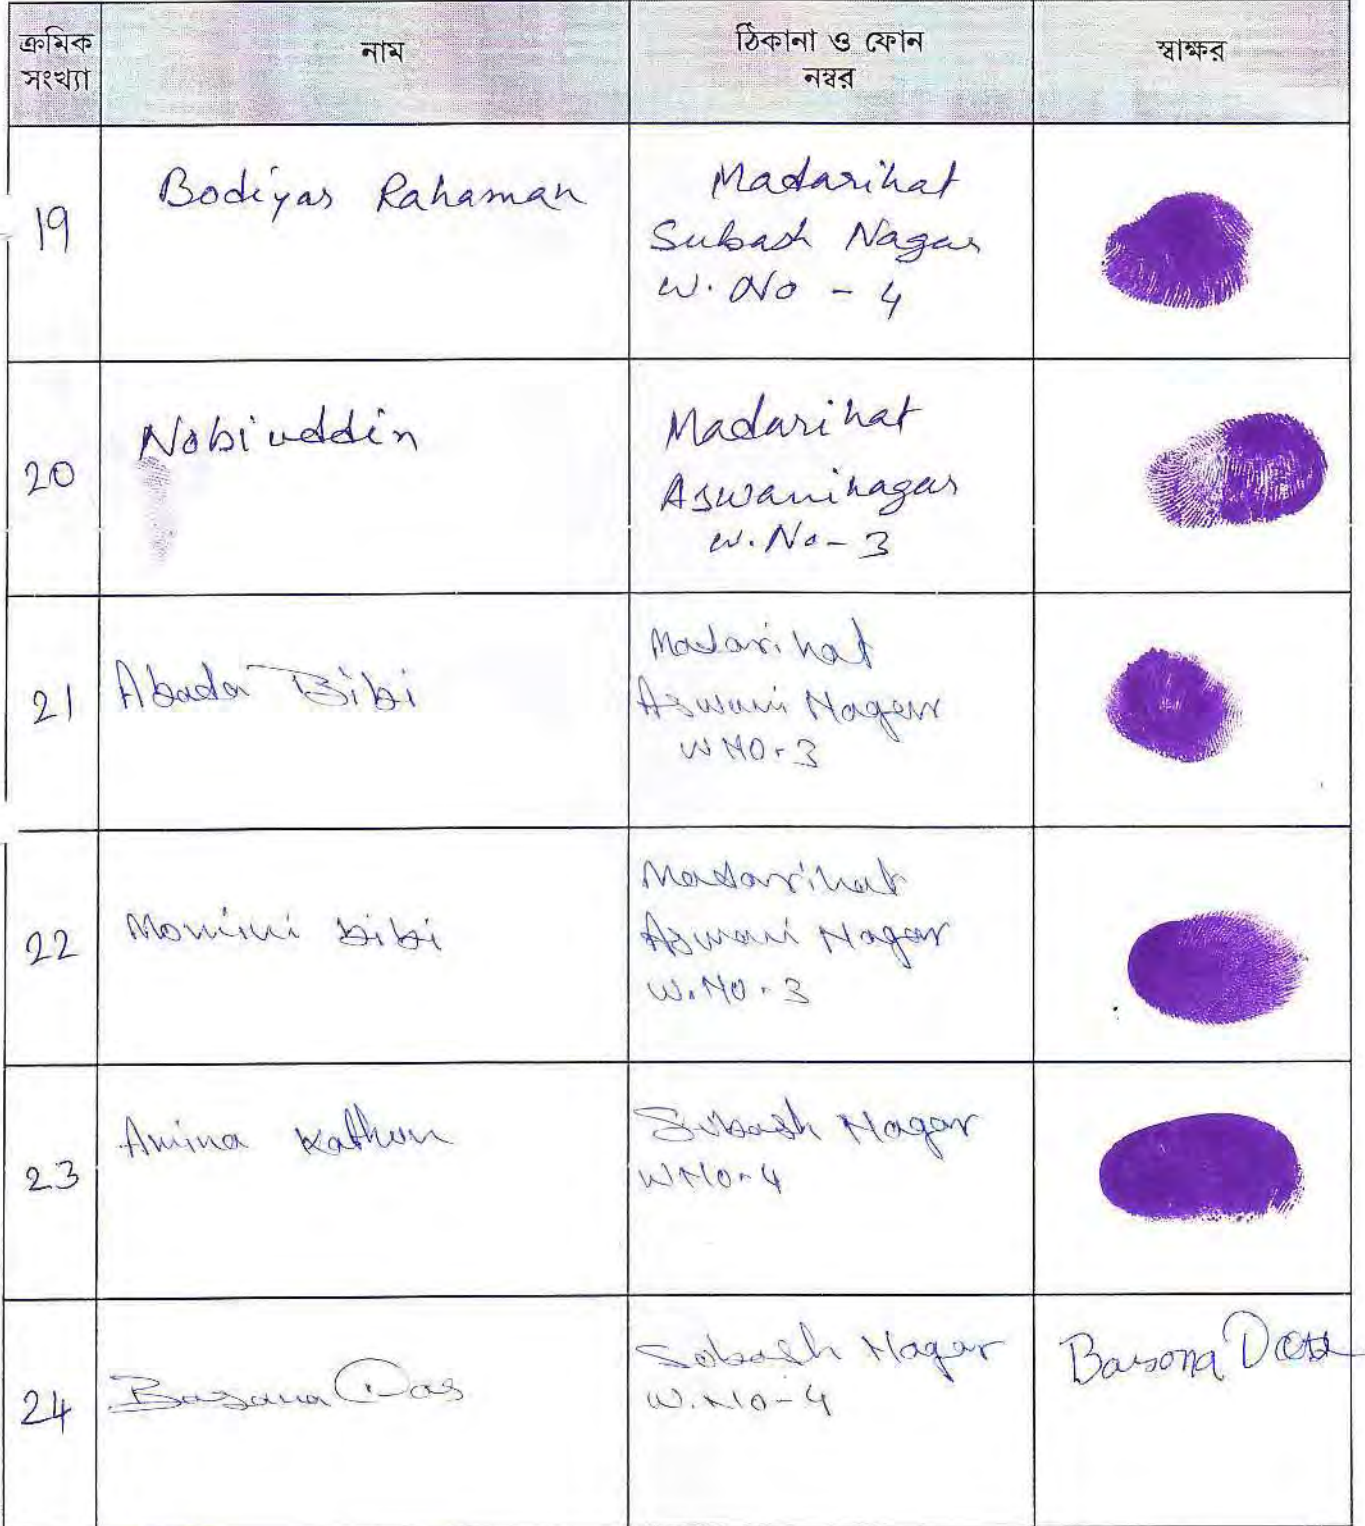 ক্রমিক সংখ্যা
নাম
ঠিকানা ও ফোন নম্বর
স্বাক্ষর
19
Bodiyas Rahaman
Madarihat
Subash Nagar
W. No - 4
20
Nobiuddin
Madarihat
Aswaninagar
W. No - 3
21
Abada Bibi
Madarihat
Aswani Nagar
W NO - 3
22
Momini bibi
Madarihat
Aswani Nagar
W. NO - 3
23
Amina Kathun
Subash Nagar
W NO - 4
24
Basana Das
Sobash Nagar
W. NO - 4
Basona Das